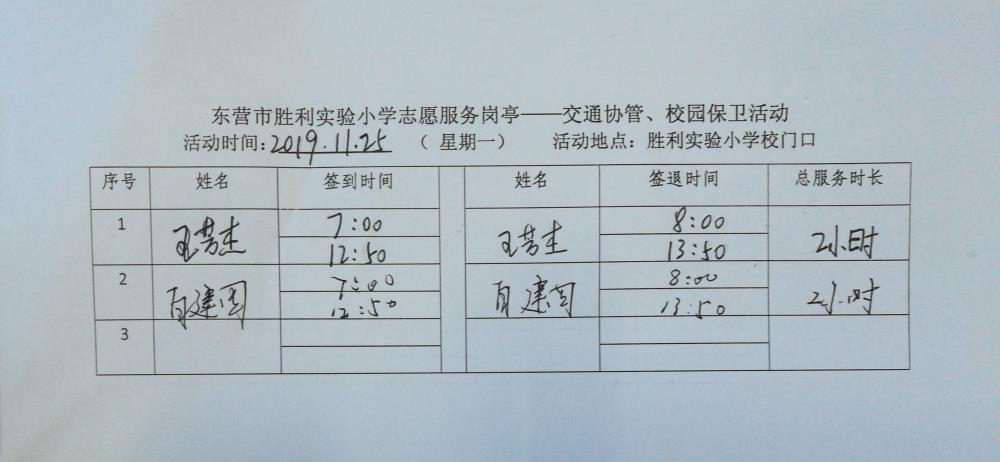 东营市胜利实验小学志愿服务岗亭——交通协管、校园保卫活动
活动时间:2019.11.25 （ 星期一） 活动地点：胜利实验小学校门口
序号 姓名 签到时间 姓名 签退时间 总服务时长
1 王芳杰 7:00 王芳杰 8:00 2小时
12:50 13:50
2 肖建国 7:00 肖建国 8:00 2小时
12:50 13:50
3